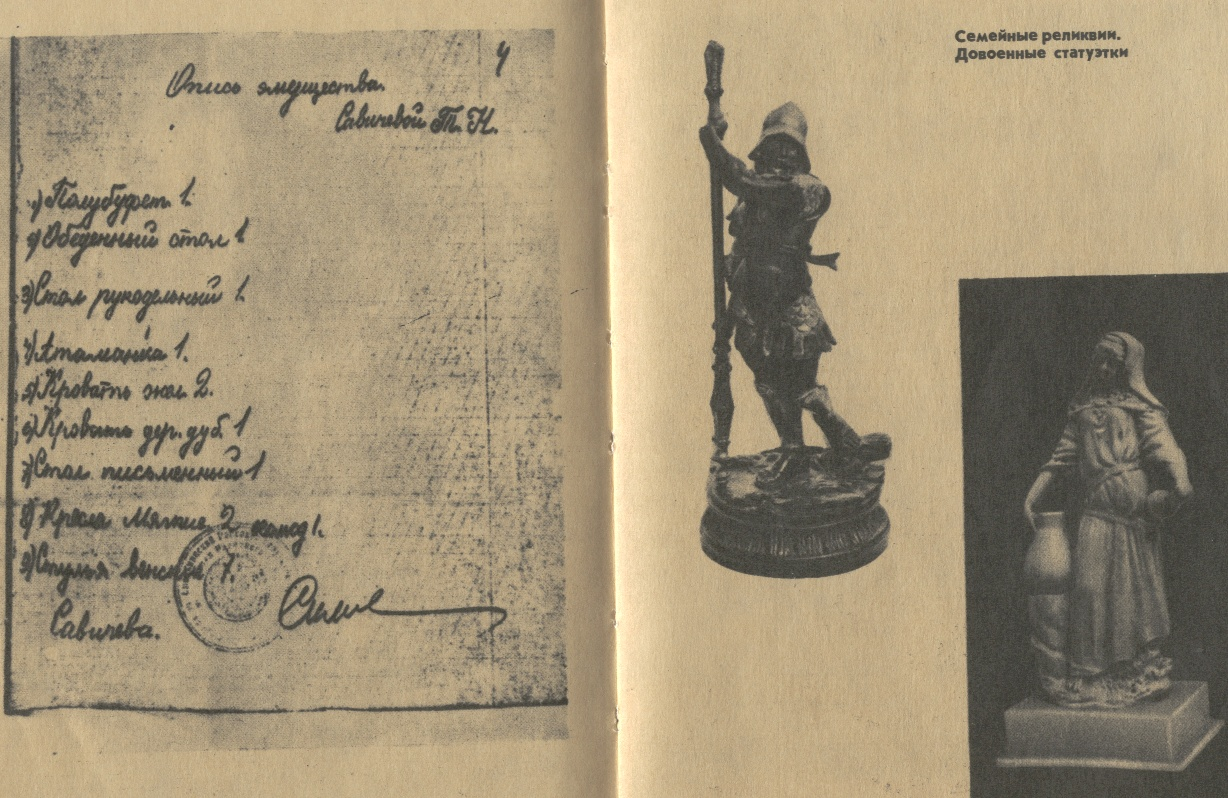 4
Опись имущества.
Савичевой Т. Н.
1) Полубуфет 1.
2) Обеденный стол 1
3) Стол рукодельный 1.
4) Атаманка 1.
5) Кровать жел. 2.
6) Кровать дер. дуб. 1
7) Стол письменный 1
8) Кресла мягкие 2 комод 1.
9) Стулья венские 7.
Савичева.
Семейные реликвии.
Довоенные статуэтки